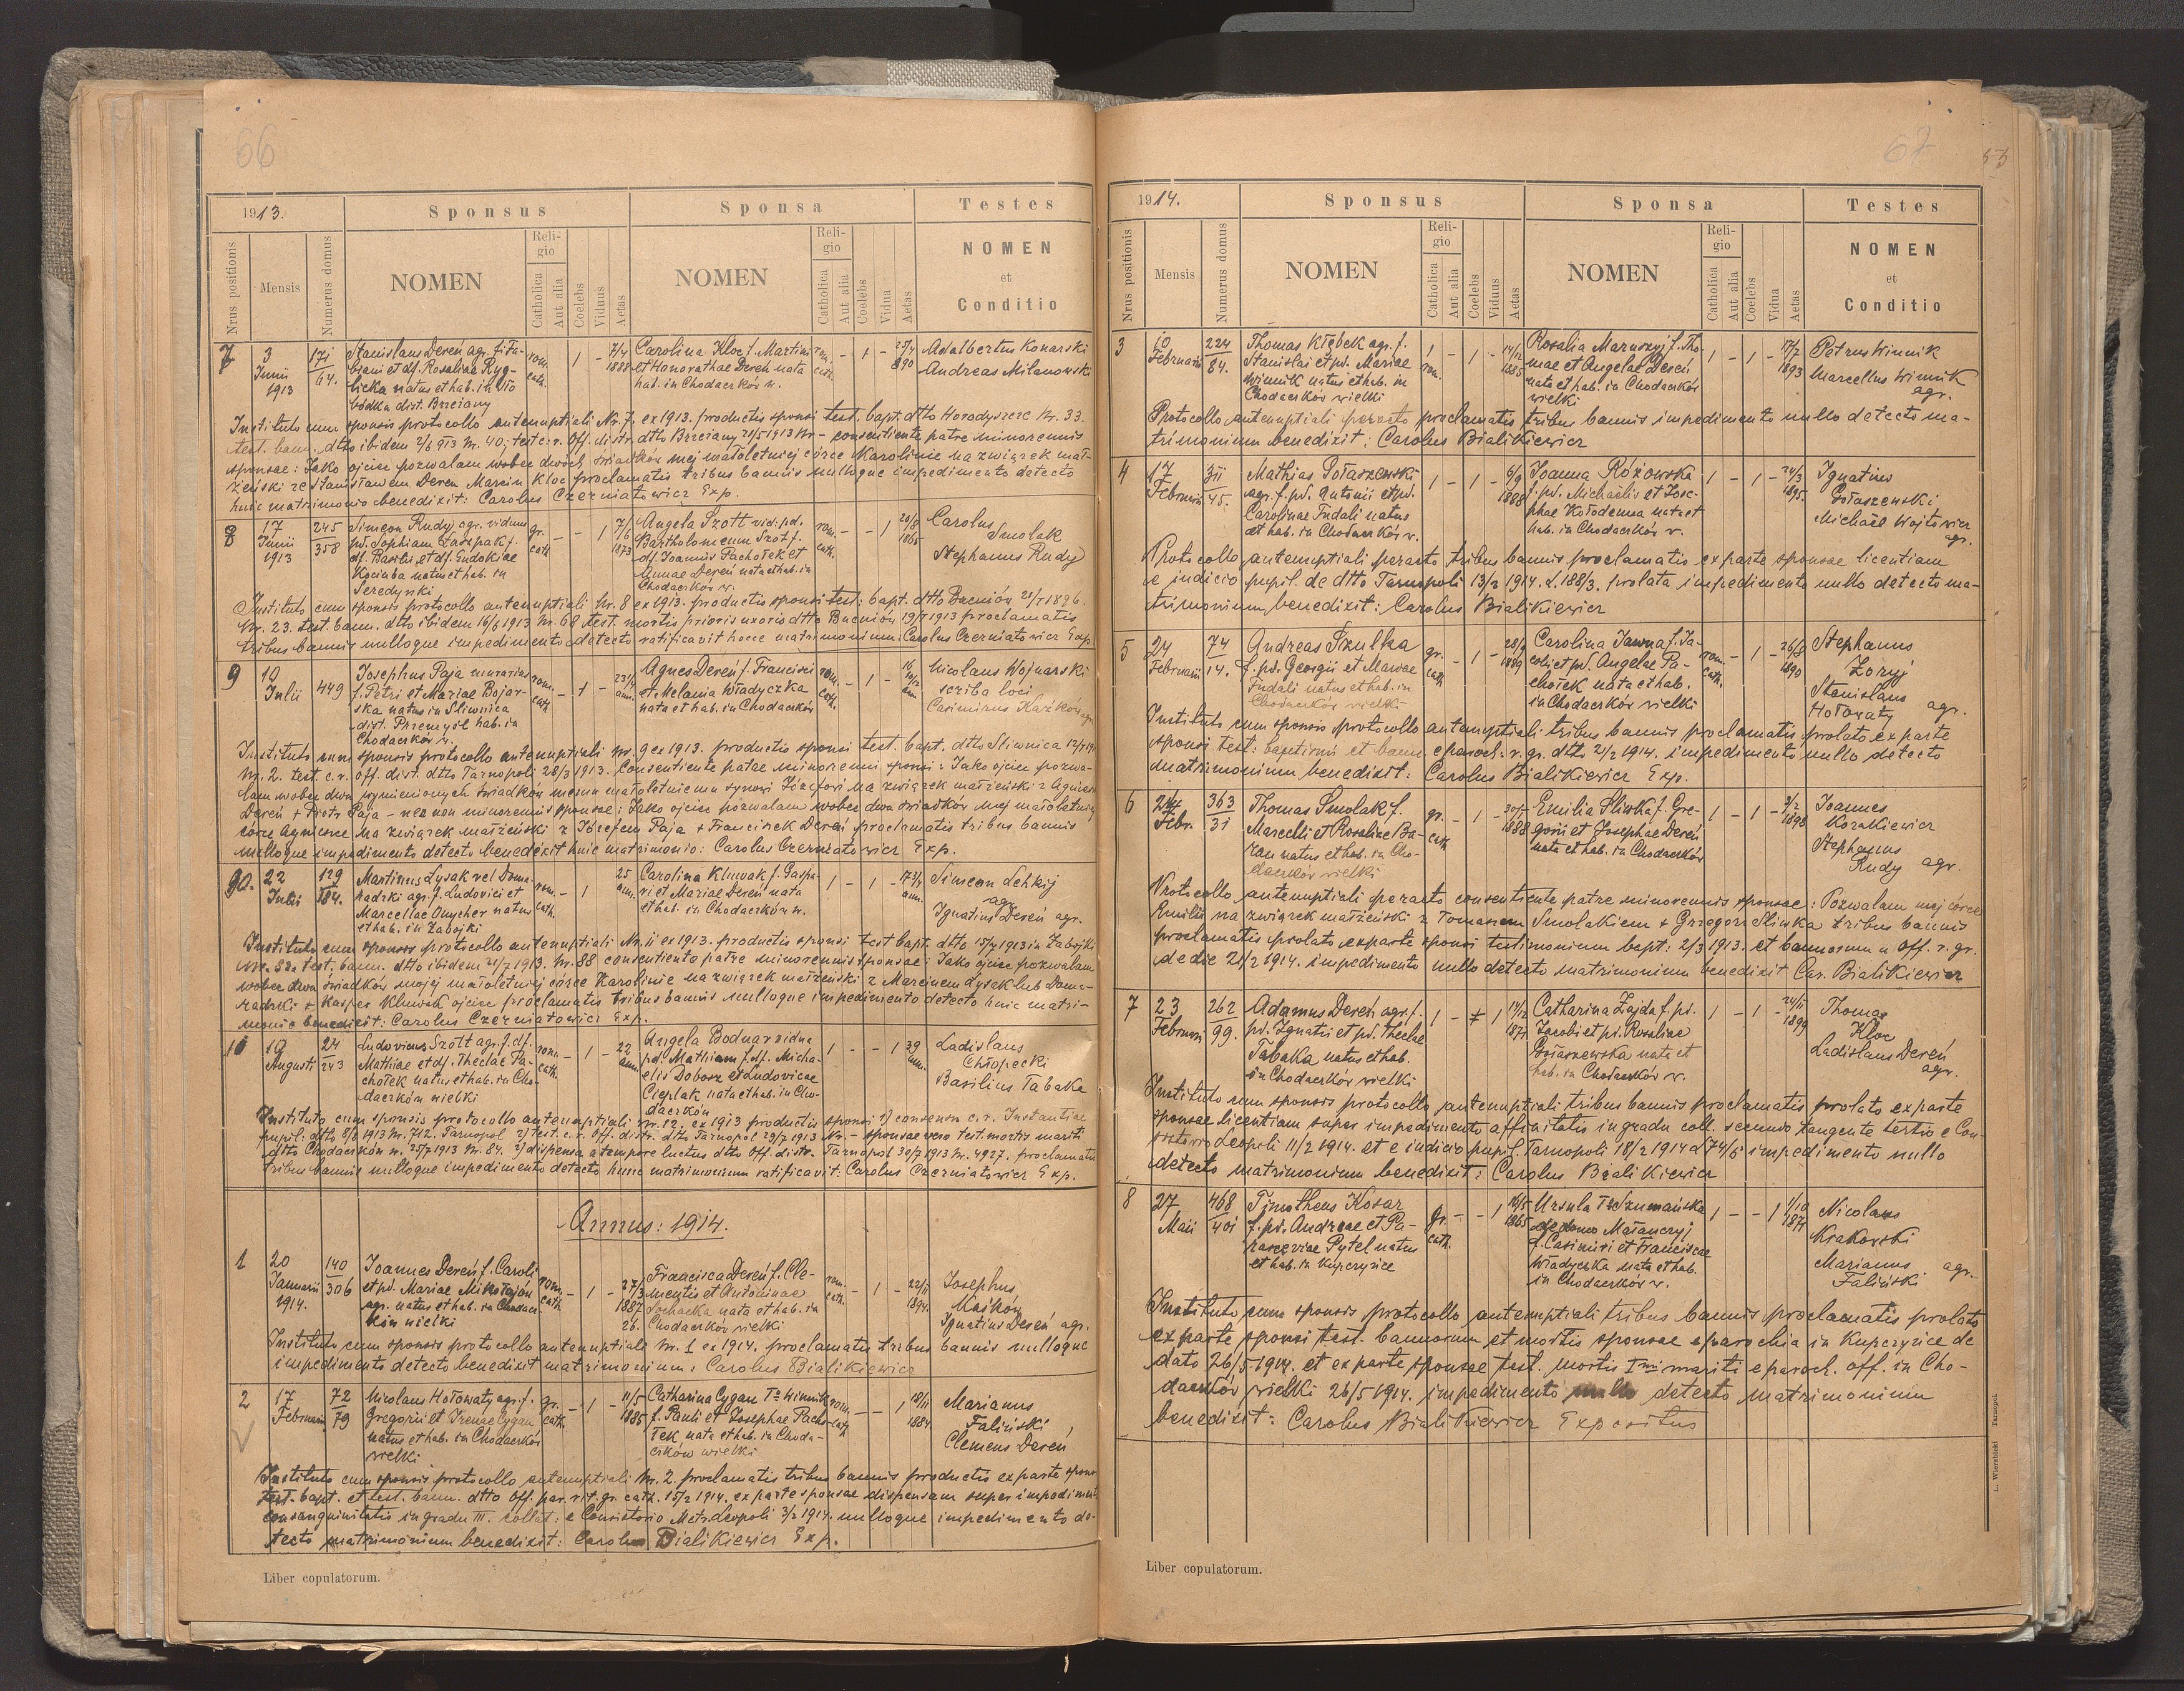 66
1913.
Sponsus
Sponsa
Testes
Nrus positionis
Mensis
Numerus domus
NOMEN
Religio
Catholica
Aut alia
Coelebs
Viduus
Aetas
NOMEN
Religio
Catholica
Aut alia
Coelebs
Vidua
Aetas
NOMEN
et
Conditio
7
3 Junii 1913
171/64.
Stanislaus Dereń agr. f. Fa-
biani et df. Rosaliae Kyg-
licka natus et hab. in
dist. Brzeżany
rom. cath. – 1 – 7/4 1888
Carolina Kloc f. Martini
et Honorathae Dereń nata
hab. in Chodaczków w.
rom. cath. – 1 – 25/4 890
Adalbertus Konarski
Andreas Milanowski
Instituto cum sponsis protocollo antenuptiali Nr. 7. ex 1913. productis sponsi test. bapt. dtto Horodyszcze Nr. 33.
test. bann. dtto ibidem 2/6 913 Nr. 40, test. c. r. Off. distr. dtto Brzeżany 20/5 1913 Nr – consentiente patre minorennis
sponsae: Jako ojciec pozwalam wobec dwóch świadków mej małoletniej córce Karolinie na związek mał-
żeński ze Stanisławem Dereń Marcin Kloc proclamatis tribus bannis nulloque impedimento detecto
huic matrimonio benedixit: Carolus Czerniatowicz Exp.
8
17 Junii 1913
245/358
Simeon Rudy, agr. viduus
pd. Sophiam Zaszpak f.
df. Basilii et df. Eudokiae
Kociuba natus et hab. in
Seredynki
gr. cath. – – 1 7/6 1873
Angela Szott vid. pd.
Bartholomeum Szot f.
df. Joannis Pachołek et
Annae Dereń nata et hab. in
Chodaczków w.
rom. cath. – – 1 20/8 1865
Carolus
Smolak
Stephanus Rudy
Instituto cum sponsis protocollo antenuptiali Nr. 8 ex 1913. productis sponsi test: bapt. dtto Bucniów
Nr. 23. test. bann. dtto ibidem 16/6 1913 Nr. 68 test. mortis prioris uxoris dtto Bucniów 1913 proclamatis
tribus bannis nulloque impedimento detecto ratificavit hocce matrimonium: Carolus Czerniatowicz Exp
9
10 Julii
449
Josephus Paja murarius
f. Petri et Mariae Bojar-
ska natus in Sliwnica
dist. Przemyśl hab. in
Chodaczków w.
rom. cath. – 1 –
Agnes Dereń f. Francisci
et Melania Władyczka
nata et hab. in Chodaczków
rom. cath. – 1 –
Nicolaus Wojnarski
scriba loci
Casimirus Kaźków agr
Instituto cum sponsis protocollo antenuptiali Nr. 9 ex 1913. productis sponsi test. bapt. dtto Sliwnica
Nr. 2. test. c. r. off. dist. dtto Tarnopoli 28/3 1913. Consentiente patre minorenni sponsi: Jako ojciec pozwa-
lam wobec dwu wymienionych świadków memu małoletniemu synowi Józefowi na związek małżeński z Agnieszką
Dereń + Piotr Paja – nec non minorennis sponsae: Jako ojciec pozwalam wobec dwu świadków mej małoletniej
córce Agnieszce na związek małżeński z Józefem Paja + Franciszek Dereń proclamatis tribus bannis
nulloque impedimento detecto benedixit huic matrimonio: Carolus Czerniatowicz Exp.
10.
22 Julii
129/184.
Martinus Łysak vel Doma-
radzki agr. f. Ludovici et
Marcellae Onycher natus
et hab. in Zabojki
rom. cath. – 1 25 ann.
Carolina Kluwak f. Gaspa-
ri et Mariae Dereń nata
et hab. in Chodaczków w.
1 – 1 – 17 3/4 ann.
Simeon Lehkij
agr
Ignatius Dereń agr.
Instituto cum sponsis protocollo antenuptiali Nr. 11 ex 1913. productis sponsi test bapt. dtto 15/7 1913 in Zabojki
Nro. 82. test. bann. dtto ibidem 21/7 1913. Nr. 88 consentiente patre minorennis sponsae: Jako ojciec pozwalam
wobec dwu świadków mojej małoletniej córce Karolinie na związek małżeński z Marcinem Łysak lub Doma-
radzki + Kasper Kluwak ojciec proclamatis tribus bannis nulloque impedimento detecto huic matri-
monio benedixit: Carolus Czerniatowicz Exp.
19 Augusti
24/243
Ludovicus Szott agr. f. df.
Mathiae et df. Theclae Pa-
chołek natus et hab. in Cho-
daczków wielki
rom. cath. – 1 – 22 ann.
Angela Bodnar vidua
pd. Mathiam f. df. Micha-
elis Dobosz et Ludovicae
Cieplak nata et hab. in Cho-
daczków
1 – – 1 39 ann.
Ladislaus
Chłopecki
Basilius Tabaka
Instituto cum sponsis protocollo antenuptiali Nr. 12. ex 1913 productis sponsi 1) consensu c. r. Instantiae
pupil: dtto 8/8 1913 Nr. 712. Tarnopol 2) test. c. r. Off. distr. dtto Tarnopol 29/7 1913 Nr. – sponsae vero test. mortis mariti
dtto Chodaczków w. 25/7 1913 Nr. 84. 2) dispensa a tempore luctus dtto Off. distr. Tarnopol 30/7 1913 Nr. 4927. proclamatis
tribus bannis nulloque impedimento detecto hunc matrimonium ratificavit: Carolus Czerniatowicz Exp.
Annus: 1914.
1
20 Januarii 1914.
140/306
Joannes Dereń f. Caroli
et pd. Mariae Mikołajów
agr. natus et hab. in Chodacz-
ków wielki
rom. cath – 1 – 27/3 1887 26.
Francisca Dereń f. Cle-
mentis et Antoninae
Sochacka nata et hab. in
Chodaczków wielki
rom. cath. – 1 – 1894.
Josephus
Maików
Ignatius Dereń agr.
Instituto cum sponsis protocollo antenuptiali Nr. 1 ex 1914. proclamatis tribus bannis nulloque
impedimento detecto benedixit matrimonium: Carolus Bialikiewicz
2
17 Februarii
72/79
Nicolaus Hołowaty agr. f.
Gregorii et Irenae Cygan
natus et hab. in Chodaczków
wielki
gr. cath. – 1 – 11/5 1885
Catharina Cygan Winnik
f. Pauli et Josephae Pacho-
łek nata et hab. in Choda-
czków wielki
rom. cath – – 1 1884
Marianus
Faliński
Clemens Dereń
Instituto cum sponsis protocollo antenuptiali Nr. 2. proclamatis tribus bannis productis ex parte sponsi
test. bapt. et test. bann. dtto off. par. rit. gr. cath. 15/2 1914. ex parte sponsae dispensam super impedimen.
consanguinitatis in gradu III. collat: e Consistorio Metr. Leopoli 3/2 1914. nulloque impedimento de-
tecto matrimonium benedixit: Carolus Bialikiewicz Exp.
Liber copulatorum.
67
1914.
Sponsus
Sponsa
Testes
Nrus positionis
Mensis
Numerus domus
NOMEN
Religio
Catholica
Aut alia
Coelebs
Viduus
Aetas
NOMEN
Religio
Catholica
Aut alia
Coelebs
Vidua
Aetas
NOMEN
et
Conditio
3
10 Februarii
224/84.
Thomas Kłębek agr. f.
Stanislai et pd. Mariae
Winnik natus et hab. in
Chodaczków wielki
1 rom. – 1 – 14/12 1885
Rosalia Maruszyj f. Tho-
mae et Angelae Dereń
nata et hab. in Chodaczków
wielki
1 – 1 – 17/7 1893
Petrus Winnik
Marcellus Winnik
agr.
Protocollo antenuptiali peracto proclamatis tribus bannis impedimento nullo detecto ma-
trimonium benedixit: Carolus Bialikiewicz
4
17 Februarii
311/45.
Mathias Potaszewski
agr. f. pd. Antonii et pd.
Carolinae Fudali natus
et hab. in Chodaczków w.
1 – 1 – 6/9 1888
Joanna Rózowska
f. pd. Michaelis et Jose-
phae Kołodenna nata et
hab. in Chodaczków w.
1 – 1 – 24/3 1895.
Ignatius
Potaszewski
Michaël Wojtowicz
agr.
Protocollo antenuptiali peracto tribus bannis proclamatis ex parte sponsae licentiam
e iudicio pupil. de dtto Tarnopoli 13/2 1914. L. 188/3. prolata impedimento nullo detecto ma-
trimonium benedixit: Carolus Bialikiewicz
5
24 Februarii
74/14.
Andreas Szulha
f. pd. Georgii et Mariae
Fudali natus et hab. in
Chodaczków wielki
gr. cath – 1 – 1889
Carolina Jawna f. Ja-
cobi et pd. Angelae Pa-
chołek nata et hab.
in Chodaczków wielki
rom. cath. – 1 – 26/8 1890
Stephanus
Zoryj
Stanislaus
Hołowaty agr.
Instituto cum sponsis protocollo antenuptiali tribus bannis proclamatis prolato ex parte
sponsi test: baptismi et bann. e paroch. r. gr. dtto 21/2 1914. impedimento nullo detecto
matrimonium benedixit: Carolus Bialikiewicz Exp.
6
24 Febr.
363/31
Thomas Smolak f.
Marcelli et Rosaliae Ba-
ran natus et hab. in Cho-
daczków wielki
gr. cath – 1 – 1888
Emilia Sliwka f. Gre-
gorii et Josephae Dereń
nata et hab. in Chodaczków
1 – 1 – 3/2 1898
Joannes
Korzkiewicz
Stephanus
Rudy agr.
Protocollo antenuptiali peracto consentiente patre minorennis sponsae: Pozwalam mej córce
Emilii na związek małżeński z Tomaszem Smolakiem + Grzegorz Sliwka tribus bannis
proclamatis prolato ex parte sponsi testimonium bapt: 2/3 1913. et bannorum u Off. r. gr.
de die 21/2 1914. impedimento nullo detecto matrimonium benedixit Car. Bialikiewicz
7
23 Februarii
262/99.
Adamus Dereń agr. f.
pd. Ignatii et pd. Theclae
Tabaka natus et hab.
in Chodaczków wielki
1 – 1 14/12 1871
Catharina Zajda f. pd.
Jacobi et pd. Rosaliae
Potaszewska nata et
hab. in Chodaczków w.
1 – 1 – 24/11 1899
Thomas
Kloc
Ladislaus Dereń
agr.
Instituto cum sponsis protocollo antenuptiali tribus bannis proclamatis prolato ex parte
sponsae licentiam super impedimento affinitatis in gradu coll. secundo tangente tertio e Con-
sistorio Leopoli 11/2 1914. et e iudicio pupil. Tarnopoli 18/2 1914 d 74/6 impedimento nullo
detecto matrimonium benedixit: Carolus Bialikiewicz
8
27 Maii
468/401
Timotheus Kosar
f. pd. Andreae et Pa-
rasceviae Pytel natus
et hab. in Kupczyńce
gr. cath. – – 1 16/5 1865
Ursula Szumańska
de domo Małanczyj
f. Casimiri et Franciscae
Władyczka nata et hab.
in Chodaczków w.
1 – – 1 1/10 1871
Nicolaus
Krakowski
Marianus agr.
Faliński
Instituto cum sponsis protocollo antenuptiali tribus bannis proclamatis prolato
ex parte sponsi test. bannorum et mortis sponsae e parochia in Kupczyńce de
dato 26/5 1914. et ex parte sponsae test. mortis Imi mariti e paroch. off. in Cho-
daczków wielki 26/5 1914. impedimento nullo detecto matrimonium
benedixit: Carolus Bialikiewicz Expositus
Liber copulatorum.
L. Wierzbicki Tarnopol.